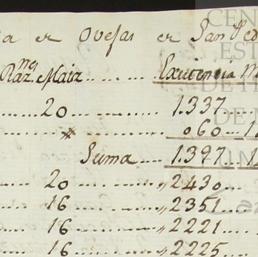 a er Ovejas er San Ped
Raz.ⁿˢ Maiz ........ Existencia M
20 1.337
060 1
Suma 1.397 1
20 2430
16 2351
16 2221
16 2225